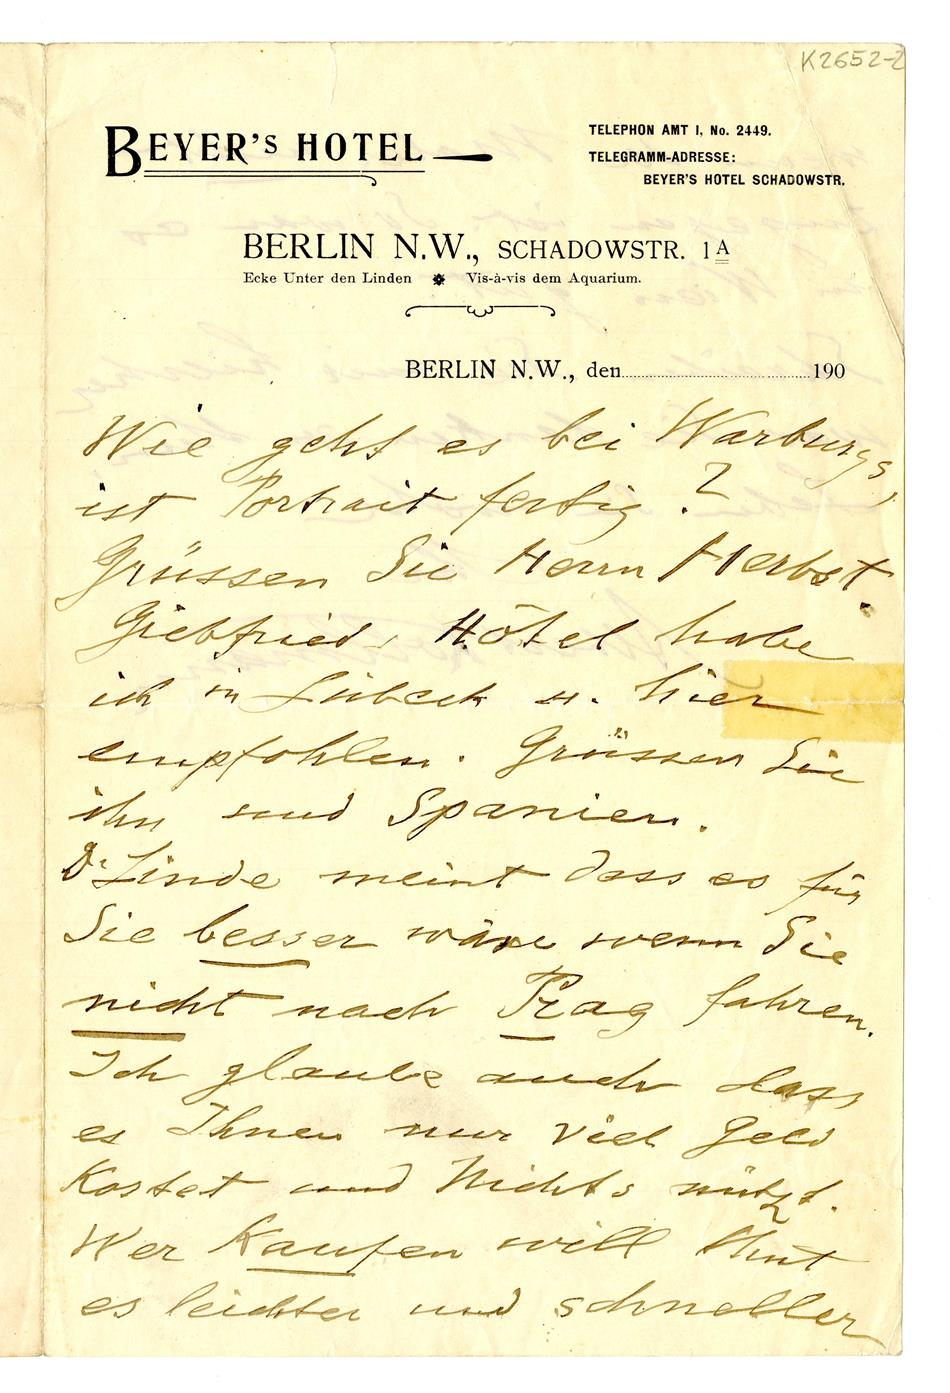 K2652-2
BEYER'S HOTEL
TELEPHON AMT I, No. 2449.
TELEGRAMM-ADRESSE:
BEYER'S HOTEL SCHADOWSTR.
BERLIN N.W., SCHADOWSTR. 1A
Ecke Unter den Linden Vis-à-vis dem Aquarium.
BERLIN N.W., den 190
Wie geht es bei Warburgs,
ist Portrait fertig?
Grüssen Sie Herrn Herbst.
Giebfried, Hôtel habe
ich in Lübeck u. hier
empfohlen. Grüssen Sie
ihn und Spanier.
Dr Linde meint dass es für
Sie besser wäre wenn Sie
nicht nach Prag fahren.
Ich glaube auch dass
es Ihnen nur viel Geld
Kostet und Nichts nützt.
Wer Kaufen will thut
es leichter und schneller